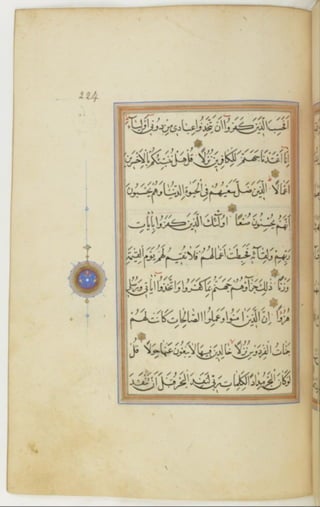 224
أَفَحَسِبَ الَّذِينَ كَفَرُوا أَن يَتَّخِذُوا عِبَادِي مِن دُونِي أَوْلِيَاءَ
إِنَّا أَعْتَدْنَا جَهَنَّمَ لِلْكَافِرِينَ نُزُلًا قُلْ هَلْ نُنَبِّئُكُم بِالْأَخْسَرِينَ
أَعْمَالًا الَّذِينَ ضَلَّ سَعْيُهُمْ فِي الْحَيٰوةِ الدُّنْيَا وَهُمْ يَحْسَبُونَ
أَنَّهُمْ يُحْسِنُونَ صُنْعًا أُولَٰئِكَ الَّذِينَ كَفَرُوا بِآيَاتِ
رَبِّهِمْ وَلِقَائِهِ فَحَبِطَتْ أَعْمَالُهُمْ فَلَا نُقِيمُ لَهُمْ يَوْمَ الْقِيٰمَةِ
وَزْنًا ذَٰلِكَ جَزَاؤُهُمْ جَهَنَّمُ بِمَا كَفَرُوا وَاتَّخَذُوا آيَاتِي وَرُسُلِي
هُزُوًا إِنَّ الَّذِينَ آمَنُوا وَعَمِلُوا الصَّالِحَاتِ كَانَتْ لَهُمْ
جَنَّاتُ الْفِرْدَوْسِ نُزُلًا خَالِدِينَ فِيهَا لَا يَبْغُونَ عَنْهَا حِوَلًا قُل
لَّوْ كَانَ الْبَحْرُ مِدَادًا لِّكَلِمَاتِ رَبِّي لَنَفِدَ الْبَحْرُ قَبْلَ أَن تَنفَدَ